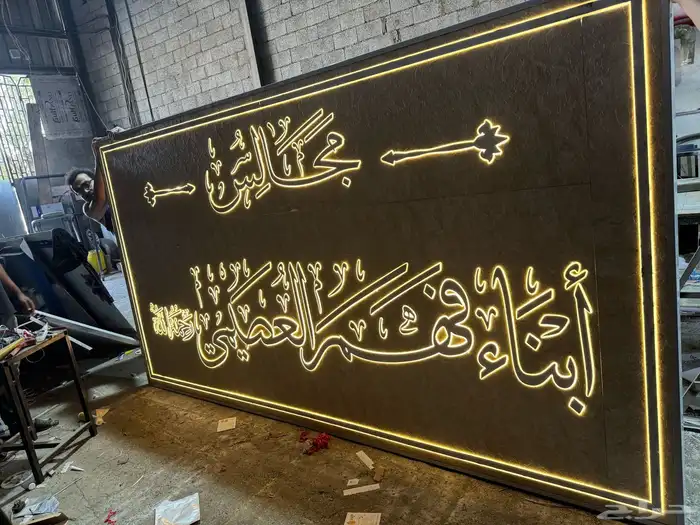 مجالس
أبناء فهم العصيمي رحمه الله
حراج